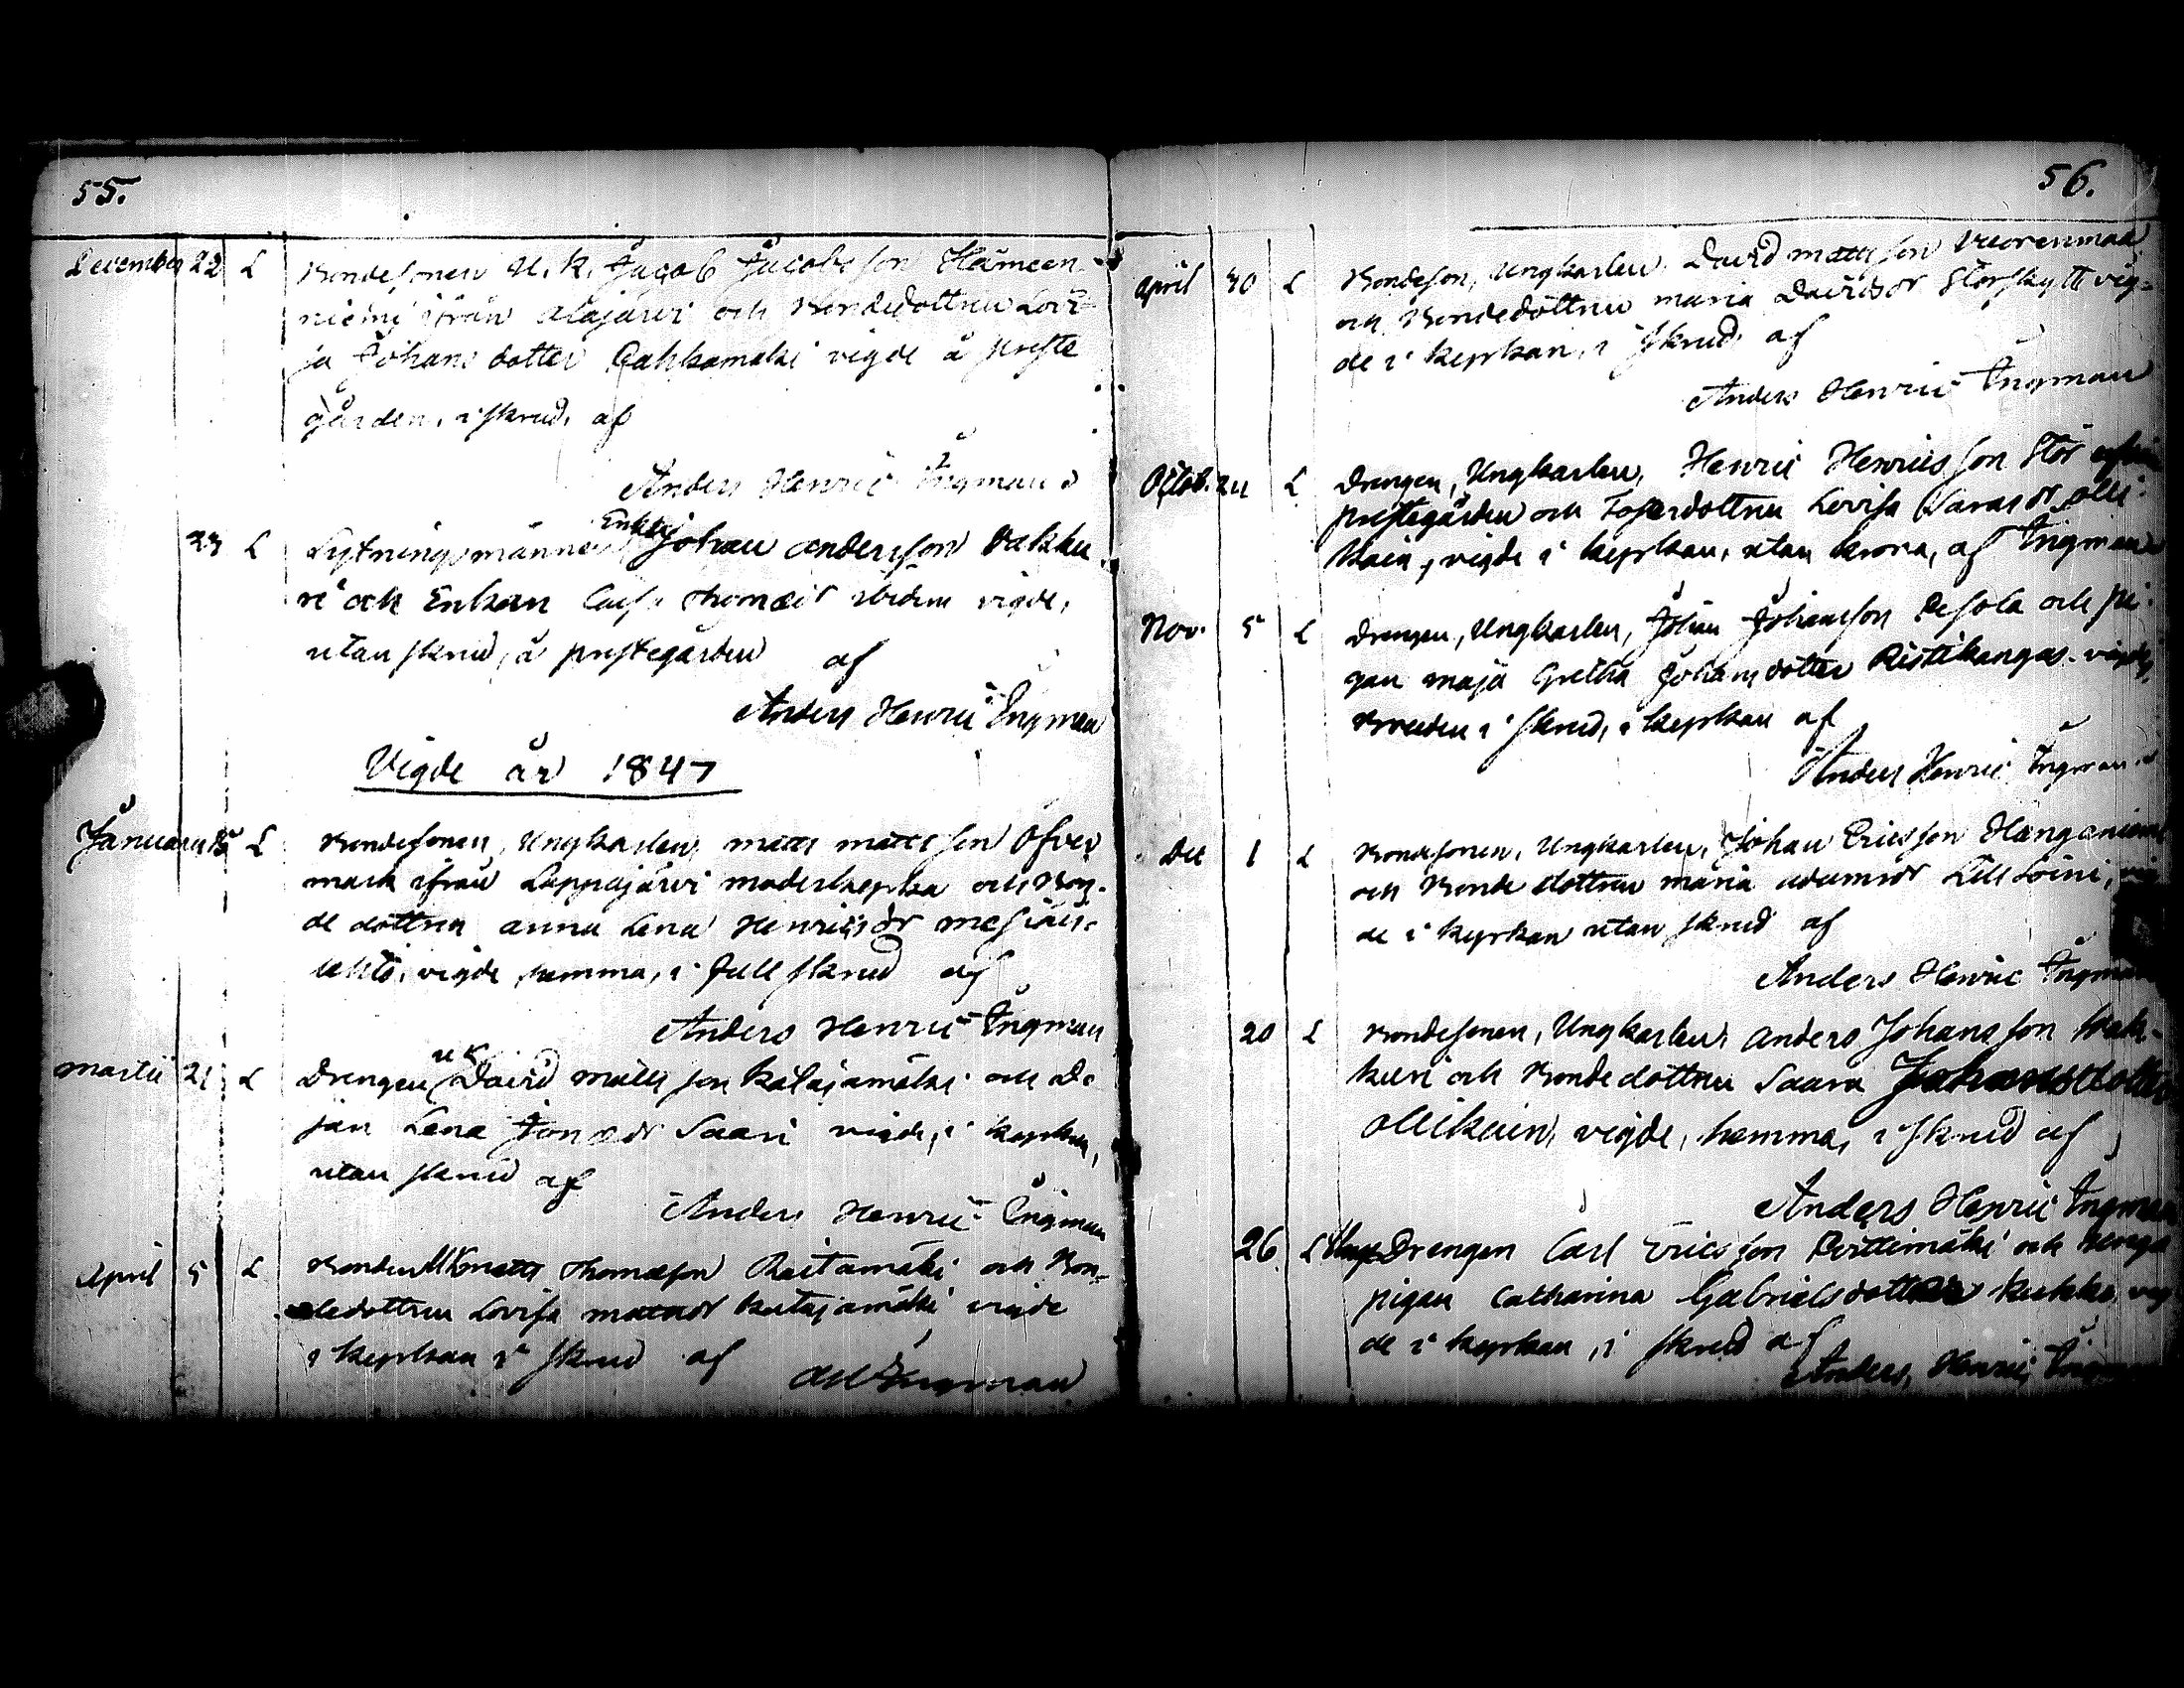 55.
December 22 L Bondesonen U. K. Jacob Jacobsson Hämeen-
niemi ifrån Alajärvi och Bondedottren Lovi-
sa Johans dotter Pahkamäki vigde å preste
gården, i skrud, af
Anders Henric Ingman
23 L Johan Andersson Vakku-
ri och Enkan Caisa Thomædr ibidem vigde,
utan skrud, å prestegården af
Anders Henric Ingman
Vigde år 1847
Januari L Bondesonen, Ungkarlen, Matts Mattsson Öfver
mark ifrån Lappajärvi moderkyrka och Bon-
de dottren Anna Lena Henricsdr
vigde hemma, i full skrud af
Anders Henric Ingman
Martii 21 L Drengen UK David Matts son Katajamäki och
Lena Jonædr Saari vigde, i kyrkan,
utan skrud af
Anders Henric Ingman
April 5 L Bonden UK Matts Thomasson Raitamäki och Bon-
dedottren Lovisa Matsdr Katajamäki vigde
i kyrkan i skrud af
AH Ingman
56.
April 30 L Bondeson, Ungkarlen, David Mattsson Vuorenmaa
och Bondedottren Maria Davidsdr Storskytt vig-
de i kyrkan, i skrud, af
Anders Henric Ingman
Octob. L Drengen, Ungkarlen, Henric Henrics son Stor
prestegården och Torpardottren Lovisa Olli-
kain, vigde i kyrkan, utan krona, af Ingman
Nov. 5 L Drengen, Ungkarlen, Johan Johansson Pesola och pi-
gan Maja Gretha Johansdotter Ristikangas vigde,
Bruden i skrud, i kyrkan af
Anders Henric Ingman
Dec 1 L Bondesonen, Ungkarlen, Johan Ericsson Hanganiemi
och Bonde dottren Maria Adamsdr Lill Soini,
de i kyrkan utan skrud af
Anders Henric Ingman
20 L Bondesonen, Ungkarlen, Anders Johansson Vak-
kuri och Bondedottren Saara Johansdotter
Ollikain, vigde, hemma, i skrud af
Anders Henric Ingman
26 L Drengen Carl Ericsson Perttimäki och
pigan Catharina Gabrielsdotter Kukko vig
de i kyrkan, i skrud af
Anders Henric Ingman